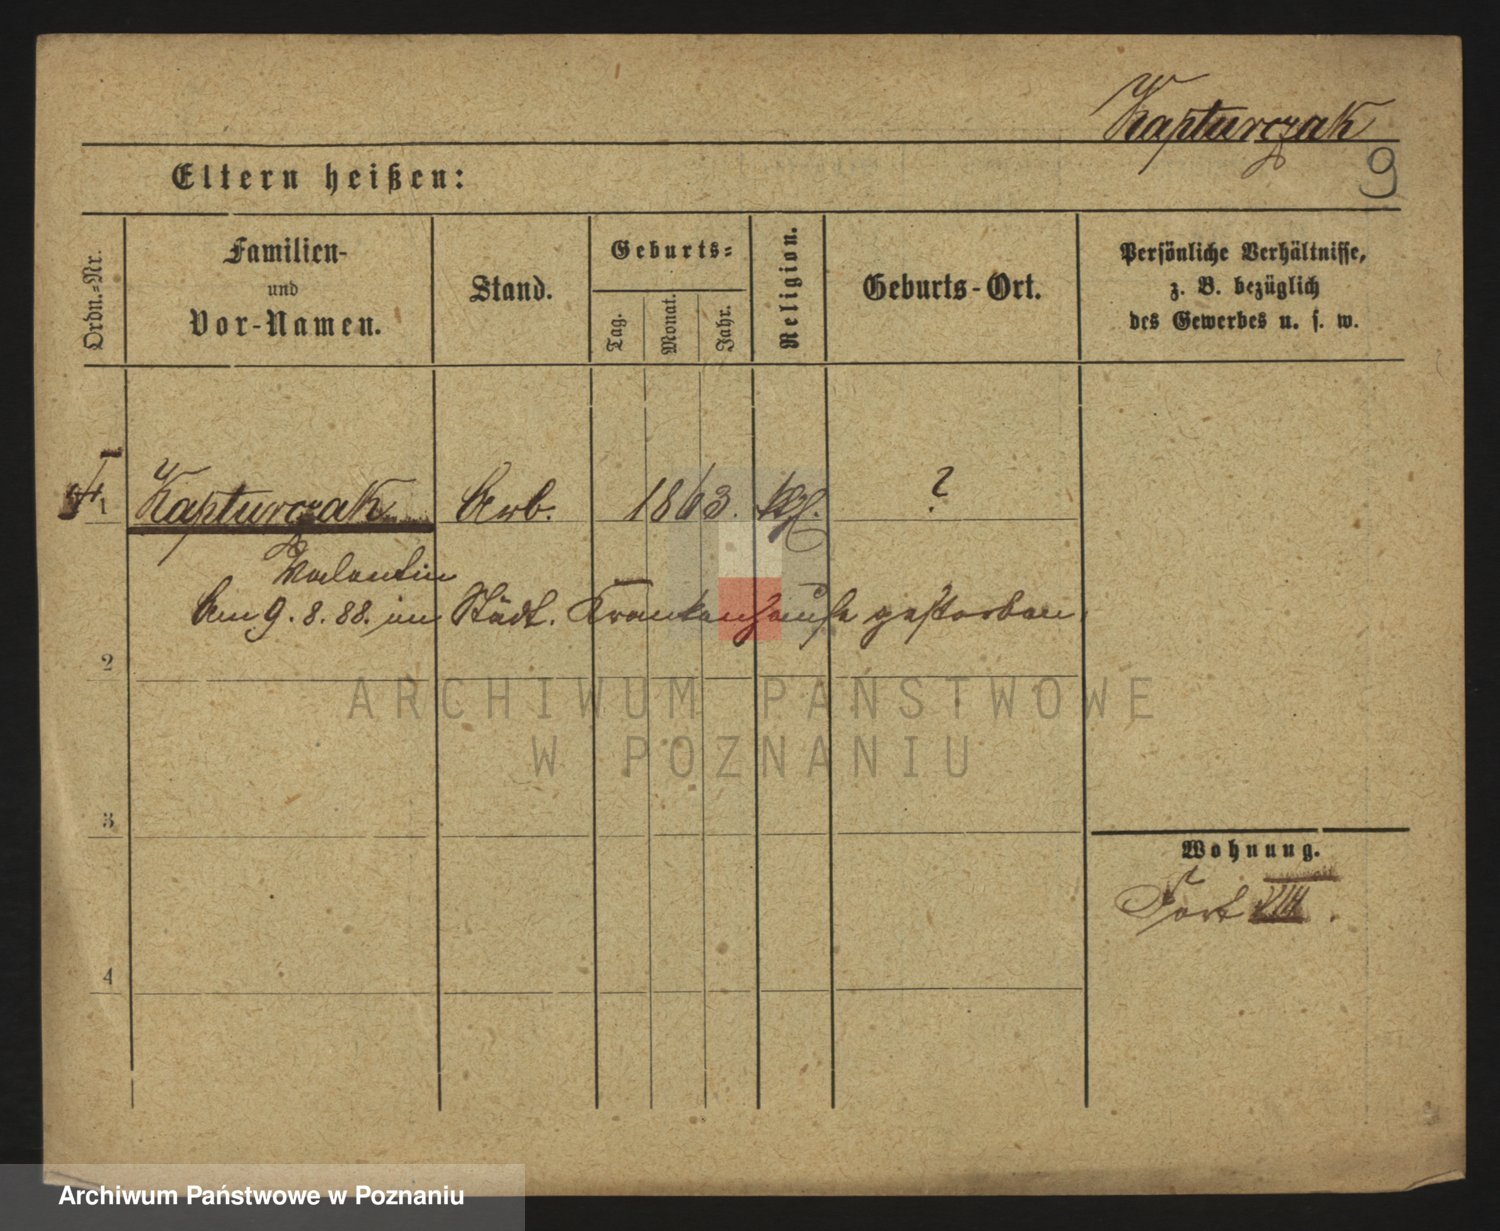 Kapturczak
9
Eltern heißen:
Ordn.-Nr.
Familien-
und
Vor-Namen.
Stand.
Geburts-
Tag.
Monat.
Jahr.
Religion.
Geburts-Ort.
Persönliche Verhältnisse,
z. B. bezüglich
des Gewerbes u. s. w.
1 Kapturczak Arb. 1863. kth. ?
Valentin
Am 9. 8. 88. im Städt. Krankenhause gestorben.
2
ARCHIWUM PAŃSTWOWE
W POZNANIU
3
Wohnung.
Fort VIII.
4
Archiwum Państwowe w Poznaniu